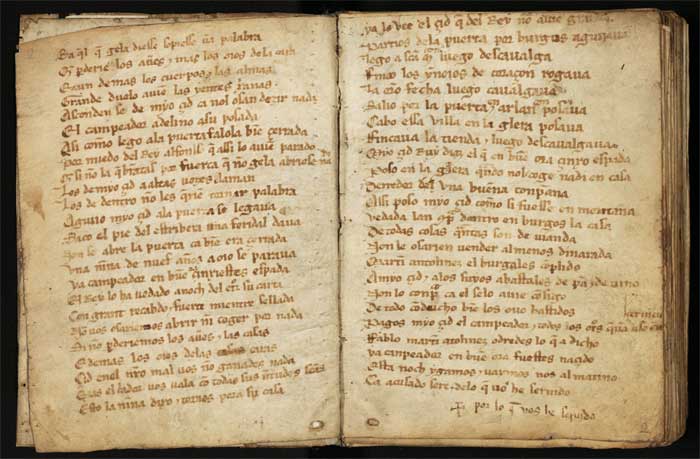 Ea q̃l q̃ gela diesse sopiesse ũa palabra
Q̃ perderie los aũes, mas los oios de la cara
E aun demas los cuerpos, las almas
Grande duelo auien las yentes xanas
Asconden se de myo çid ca nol osan dezir nada
El campeador adelino asu posada
Asi como lego ala puerta falola biẽ çerrada
Por miedo del Rey alfonss q̃ assi lo auiẽ parado
Q̃ si nõ la q̃brãtas por fuerça q̃ nõ gela abriese nadi
Los de myo çid a altas uozes laman
Los de dentro nõ les q̃riẽ tornar palabra
Aguijo myo çid ala puerta se legaua
Saco el pie del estribera una feridal daua
Non se abre la puerta ca biẽ era çerrada
Una niña de nuef años a oio se paraua
Ya campeador en buẽ çinxiestes espada
El Rey lo ha uedado anoch del etro su carta
Con grant recabdo, fuerte mientre sellada
Non uos osariemos abrir nĩ coger por nada
Si nõ perderiemos los aũes, las casas
E demas los oios delas caras
Çid enel nr̃o mal uos nõ ganades nada
Mas el criador uos uala cõ todas sus ũtudes sc̃as
Esto la niña dixo, tornos pora su casa
ya lo vee el çid q̃ del Rey nõ auie gr̃a
Partios dela puerta por burgos aguijaua
Lego a sc̃a mª luego descaualga
Finco los ynoios de coraçon rogaua
La oraçiõ fecha luego caualgaua
Salio por la puerta, arlançõ passaua
Cabo essa villa en la glera posaua
Fincaua la tienda, luego descaualgaua
Myo çid Ruy diaz el q̃ en buẽ ora çinxo espada
Poso en la glera q̃ndo nol coge nadi en casa
Derredor del vna buena conpaña
Assi poso myo çid como si fuesse en montaña
Vedada lan cõpra dentro en burgos la casa
De todas cosas q̃ntas son de uianda
Non le osarien uender almenos dinarada
Martĩ antolinez el burgales cõplido
A myo çid, alos suyos abastales de pã, de uino
Non lo conpra ca el selo auie cõsigo
De todo conducho biẽ los ouo bastidos
Pagos myo çid el campeador, todos los otros
Fablo martĩ atolinez odredes lo q̃ a dicho
Ya canpeador en buẽ ora fuestes naçido
Esta noch ygamos, uaymos nos al matino
Ca acusado sere delo q̃ uos he seruido
por lo q̃ uos he seruido